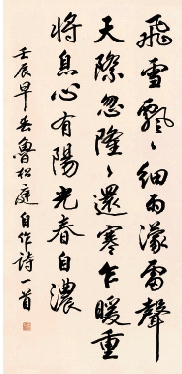 飛雪飄〻細雨濛雷聲
天際忽隆〻還寒乍暖重
將息心有陽光春自濃
壬辰早春魯松庭自作詩一首